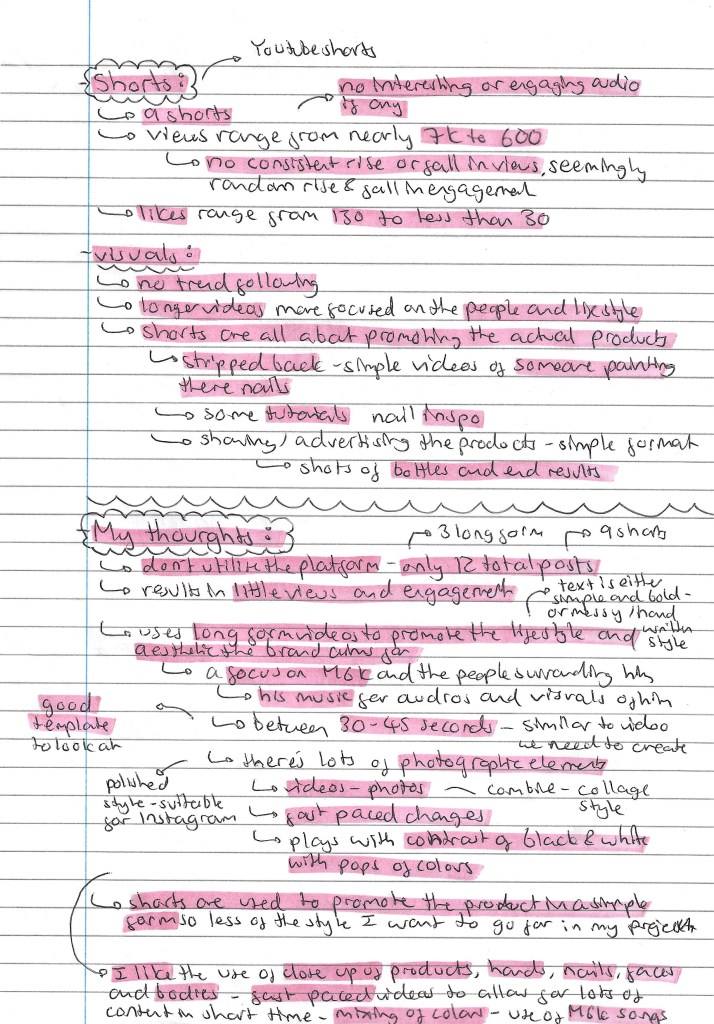 Youtube shorts
Shorts:
no interesting or engaging audio
if any
9 shorts
views range from nearly 7k to 600
no consistent rise or fall in views, seemingly
random rise & fall in engagement
likes range from 130 to less than 30
visuals:
no trend following
longer videos more focused on the people and lifestyle
shorts are all about promoting the actual products
stripped back - simple videos of someone painting
there nails
some tutorials nail inspo
showing / advertising the products - simple format
shots of bottles and end results
My thoughts:
3 long form
9 shorts
don't utilise the platform - only 12 total posts
results in little views and engagement
text is either
simple and bold -
or messy / hand
written
style
uses long form videos to promote the lifestyle and
aesthetic the brand aims for
a focus on MGK and the people surrounding him
his music for audios and visuals of him
good
template
to look at
between 30-45 seconds - similar to video
we need to create
there's lots of photographic elements
polished
style - suitable
for Instagram
videos - photos - combine - collage
style
fast paced changes
plays with contrast of black & white
with pops of colors
shorts are used to promote the product in a simple
form so less of the style I want to go for in my project
I like the use of close up of products, hands, nails, faces
and bodies - fast paced videos to allow for lots of
content in short time - mixing of colors - use of MGK songs